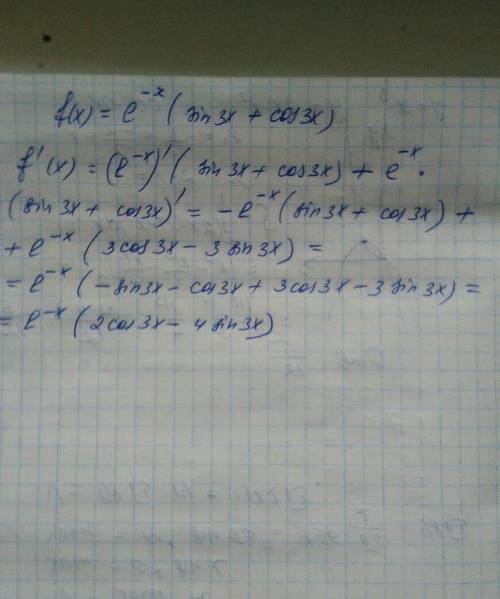 f(x) = e^{-x} (sin 3x + cos 3x)
f'(x) = (e^{-x})' (sin 3x + cos 3x) + e^{-x} ·
(sin 3x + cos 3x)' = -e^{-x} (sin 3x + cos 3x) +
+ e^{-x} (3 cos 3x - 3 sin 3x) =
= e^{-x} (- sin 3x - cos 3x + 3 cos 3x - 3 sin 3x) =
= e^{-x} (2 cos 3x - 4 sin 3x)